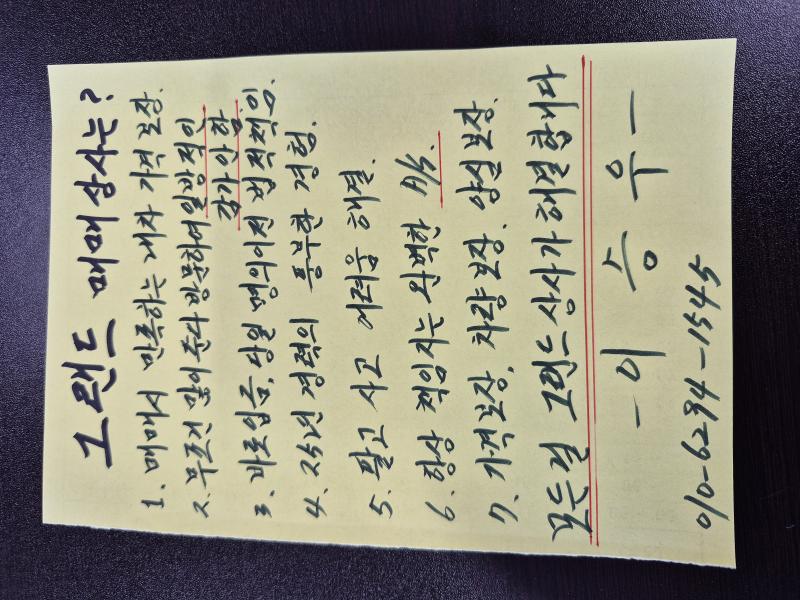 그랜드 매매 상사는?
1. 매매시 만족하는 내차 가격 보장.
2. 무조건 많이 준다 방문하여 일방적인
감가 안 함.
3. 바로입금, 당일 명의이전 법적책임.
4. 25년 경력의 풍부한 경험.
5. 팔고 사고 어려움 해결.
6. 항상 책임지는 완벽한 A/S.
7. 가격보장, 차량보장. 양심보장.
모든걸 그랜드 상사가 해결합니다
- 이 승 우 -
010-6294-1545